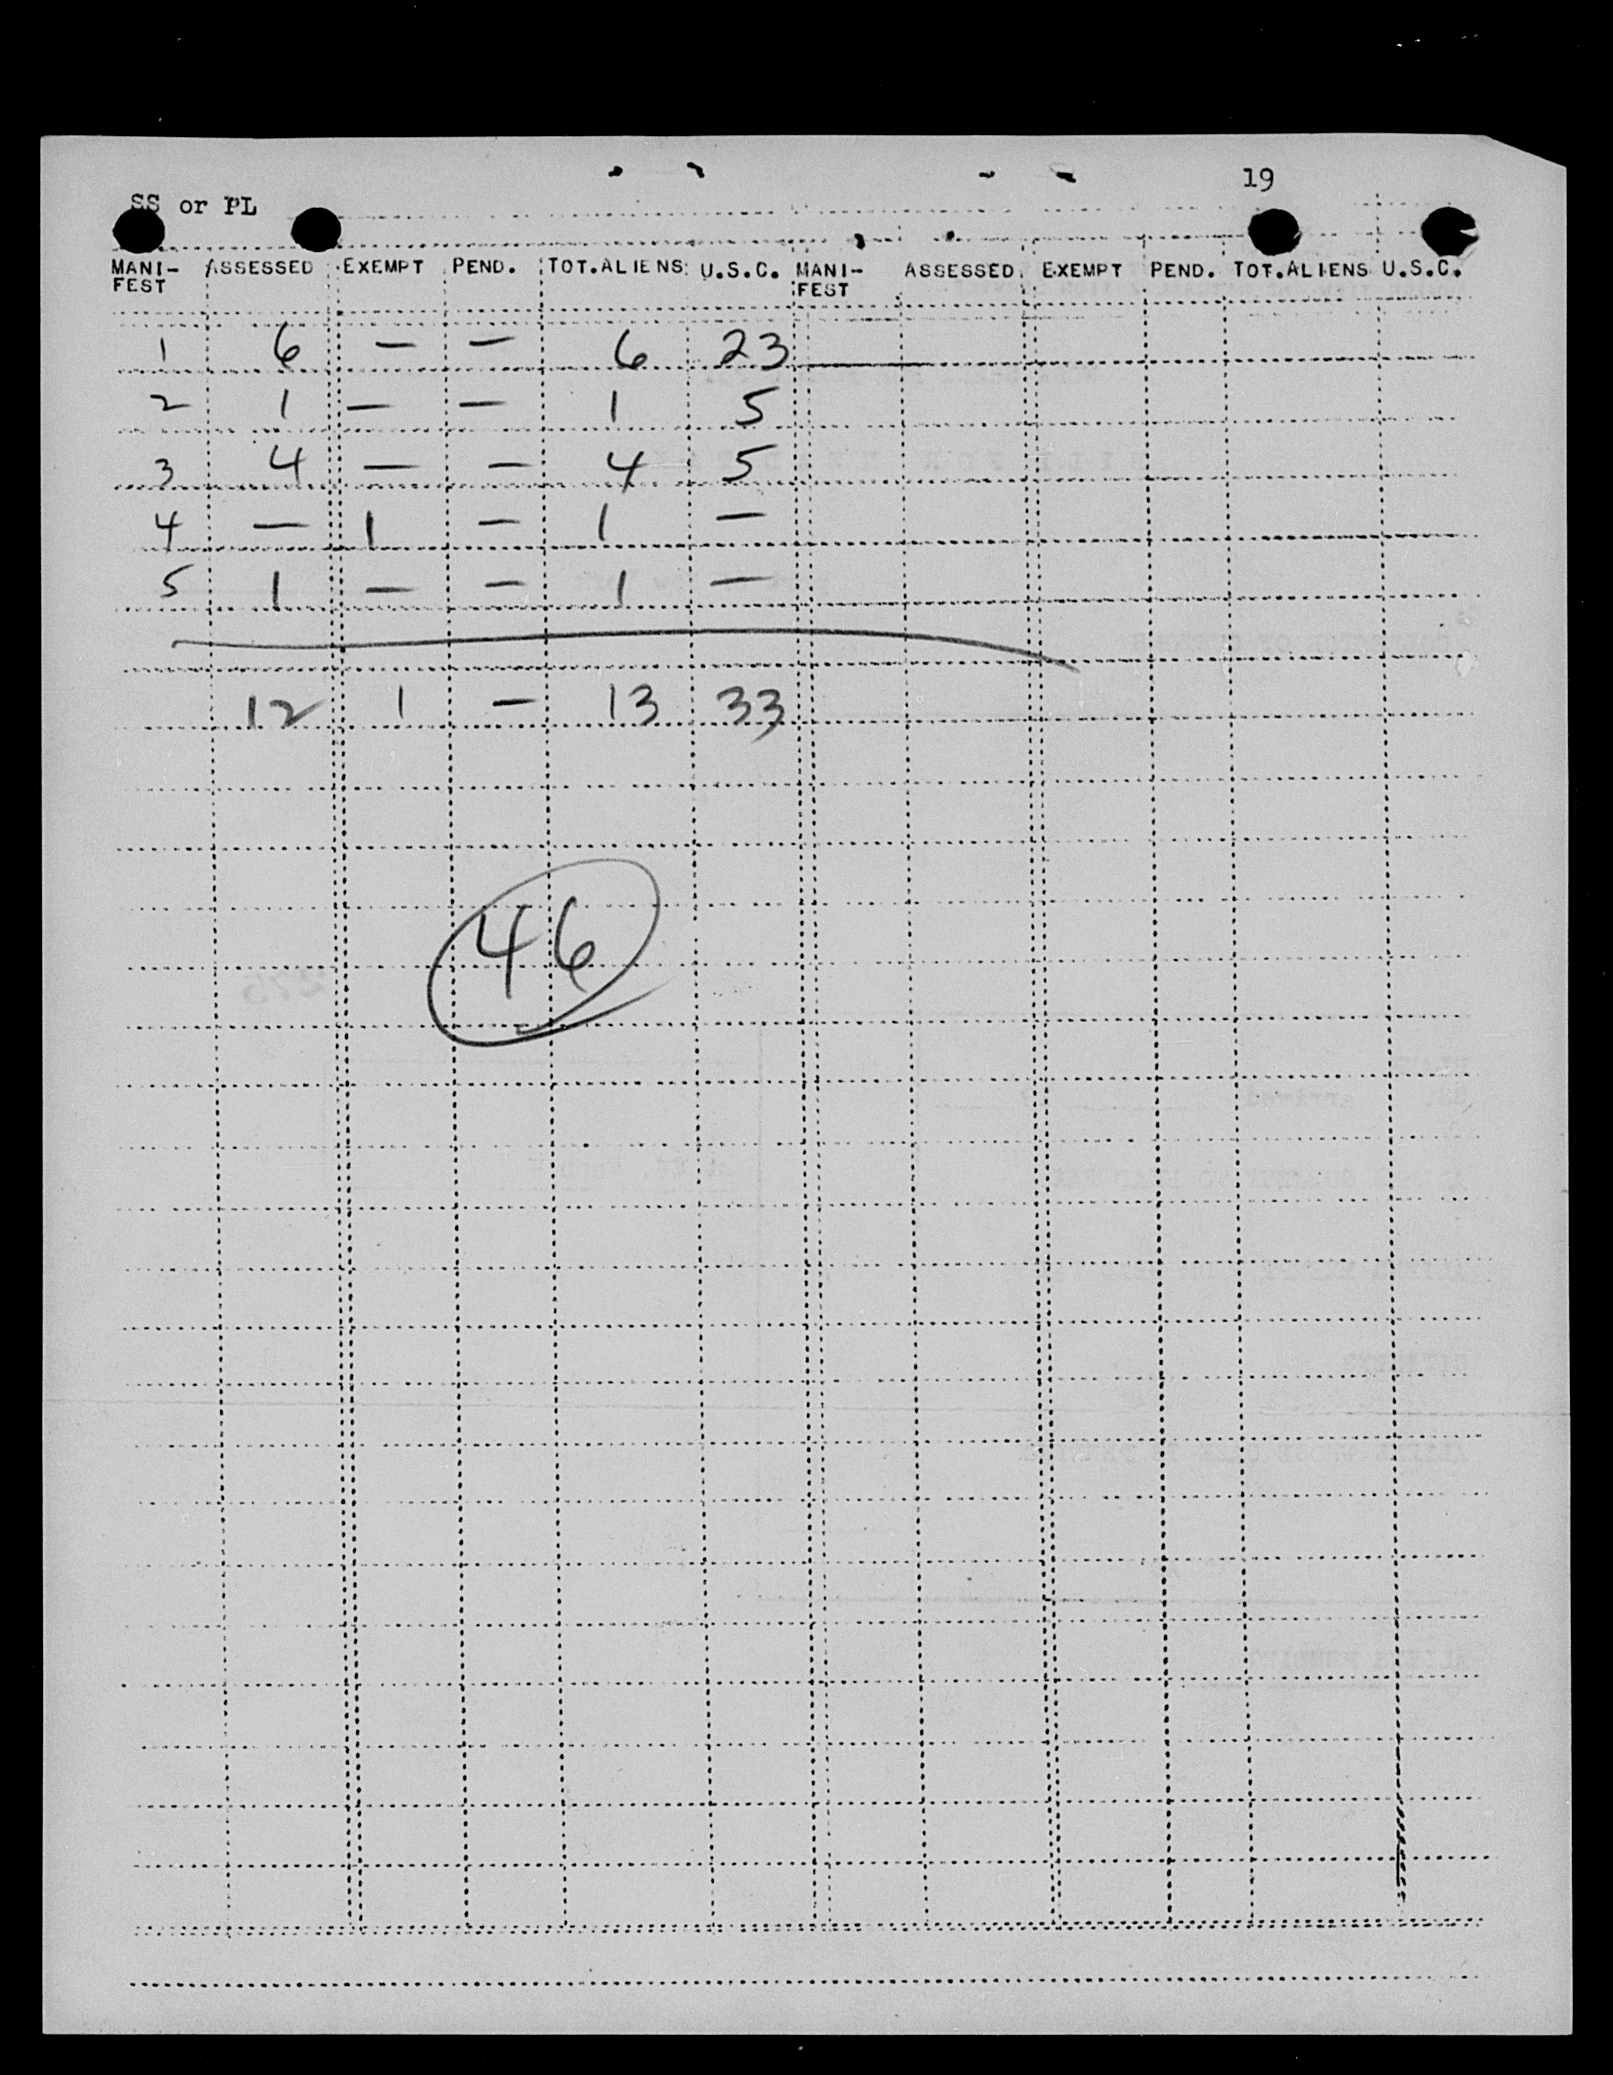 19
SS or PL
MANI- ASSESSED EXEMPT PEND. TOT.ALIENS U.S.C. MANI- ASSESSED EXEMPT PEND. TOT.ALIENS U.S.C.
FEST FEST
1 6 — — 6 23
2 1 — — 1 5
3 4 — — 4 5
4 — 1 — 1 —
5 1 — — 1 —
12 1 — 13 33
46